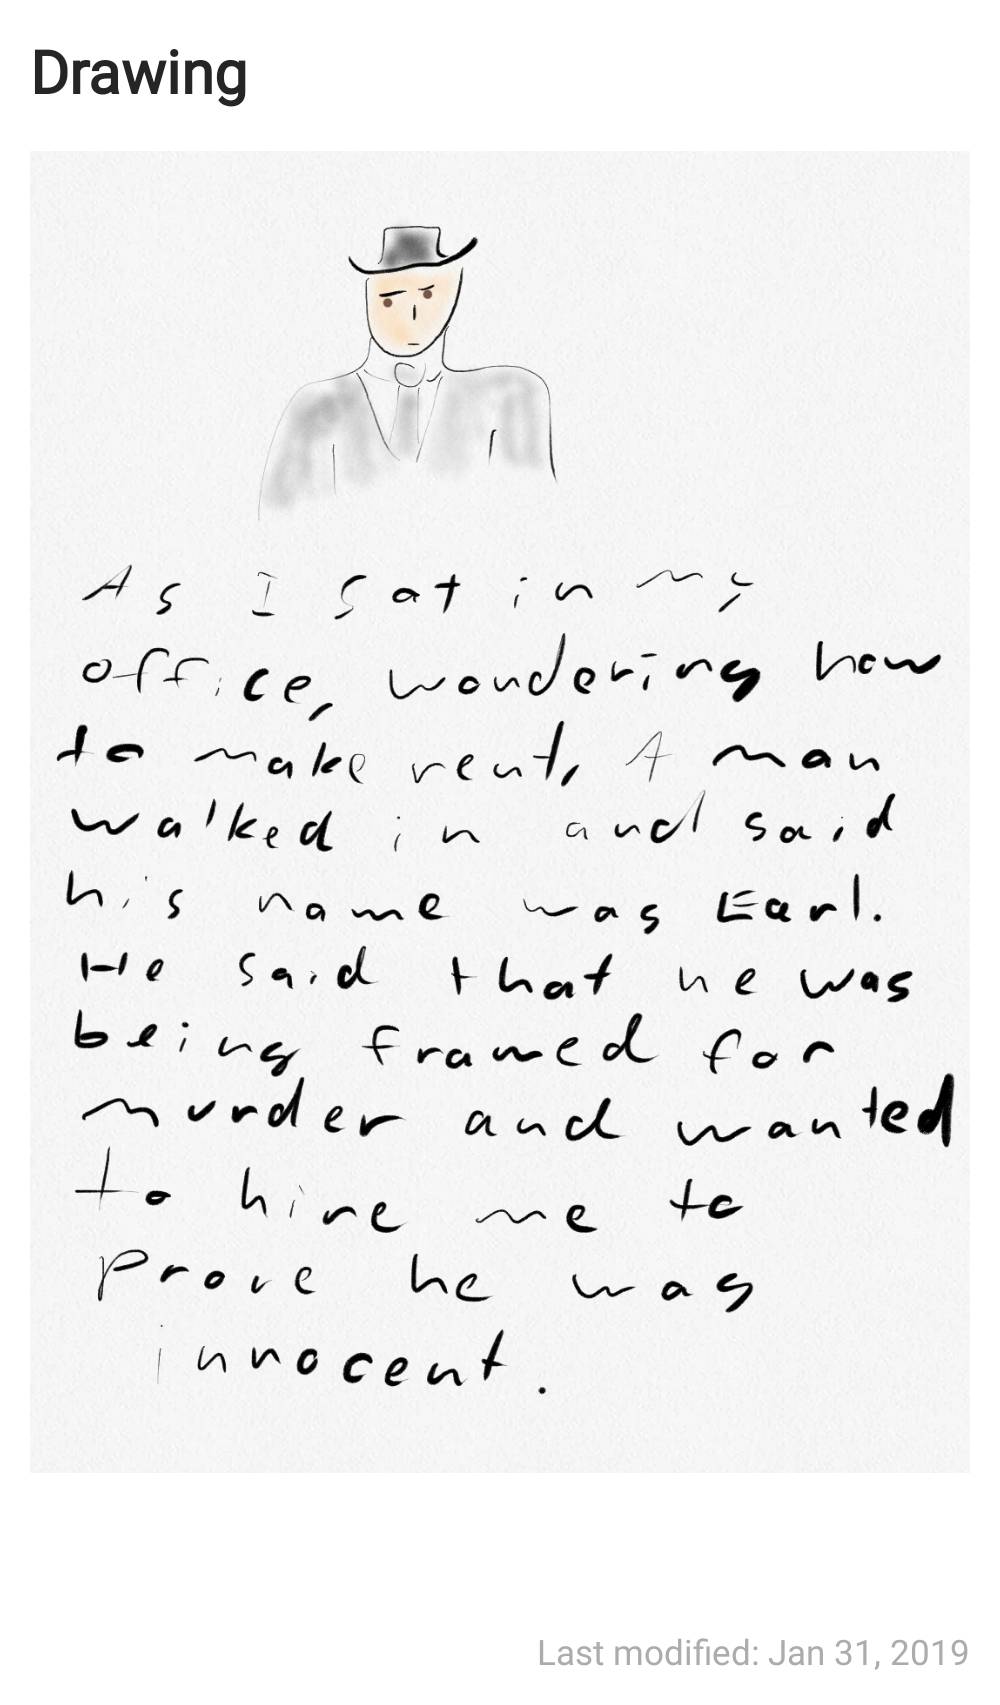 Drawing
As I sat in my
office, wondering how
to make rent, A man
walked in and said
his name was Earl.
He said that he was
being framed for
murder and wanted
to hire me to
prove he was
innocent.
Last modified: Jan 31, 2019